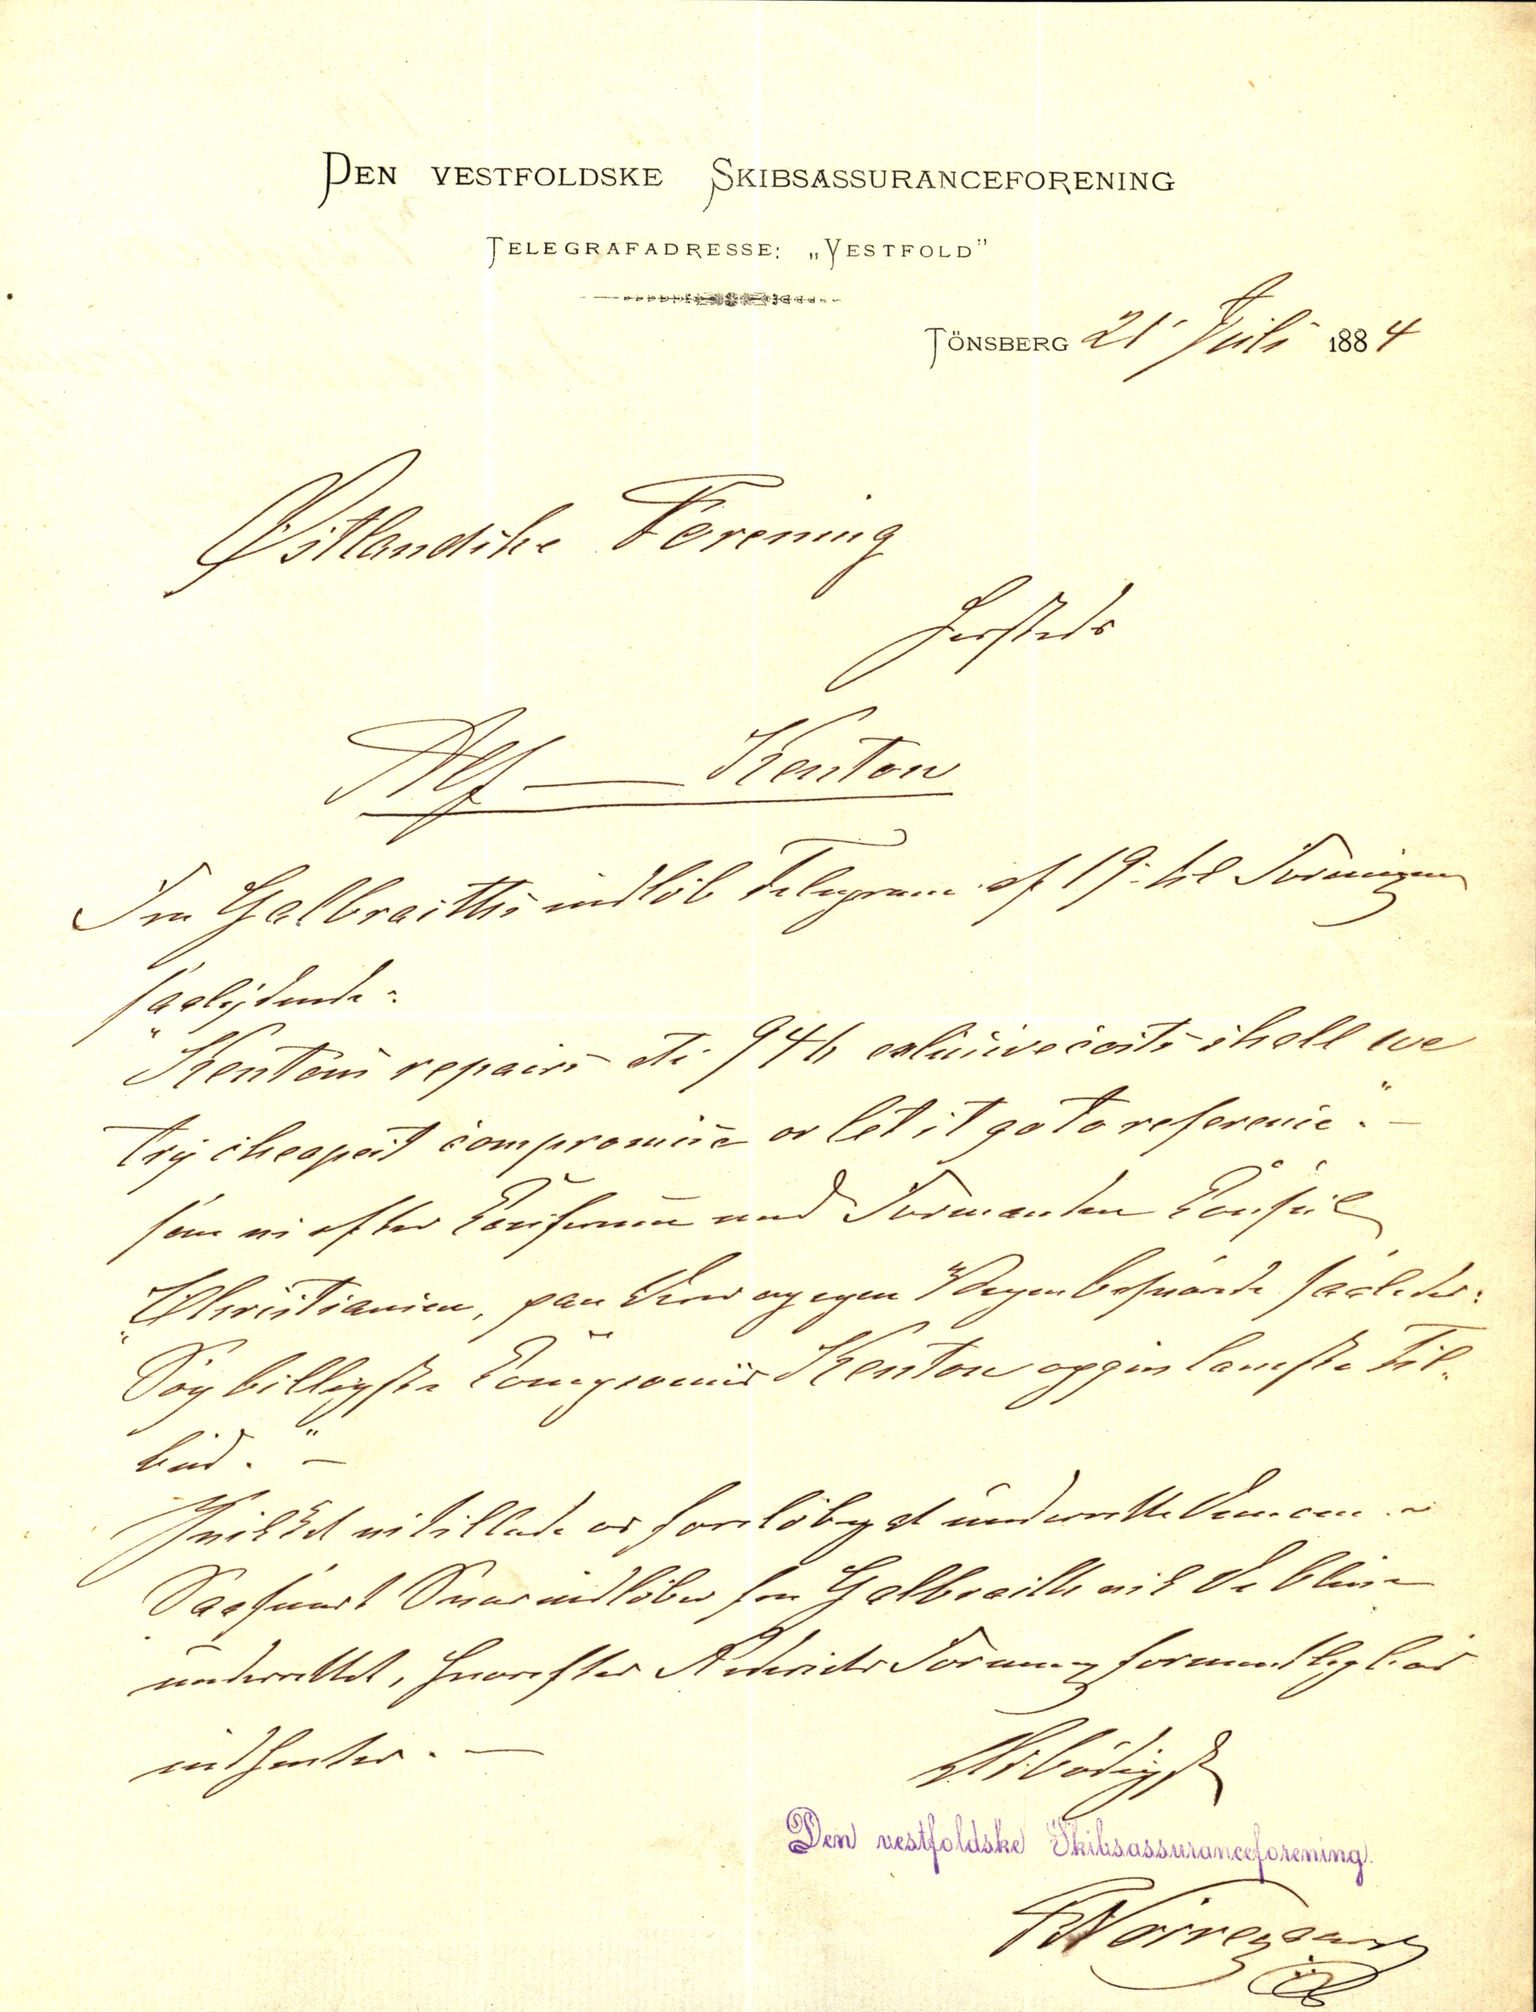 DEN VESTFOLDSKE SKIBSASSURANCEFORENING
TELEGRAFADRESSE: „VESTFOLD"
TÖNSBERG 21' Juli 1884
Østlandske Forening
hersteds
Alf — Kenton
Fra Galbraiths indløb Telegram af 19: til Foreningen
saalydende -
"Kentons repairs etc 94 exclusive costs shall we
try cheapest compromise or let it go to reference". -
som vi efter Conference med Formanden Consul
Christiansen, paa Deres og egne Vegne besvarede saaledes:
"Søg billigste Compromis Kenton opgiv laveste Til-
bud." -
Hvilket vi tillade os foreløbigt underrette Dem om. -
Saasnart Svar indløber fra Galbraith vil De blive
underrettet, hvorefter Rederiets Forening formentlig bør
indhentes. —
Ærbødigst
Den vestfoldske Skibsassuranceforening.